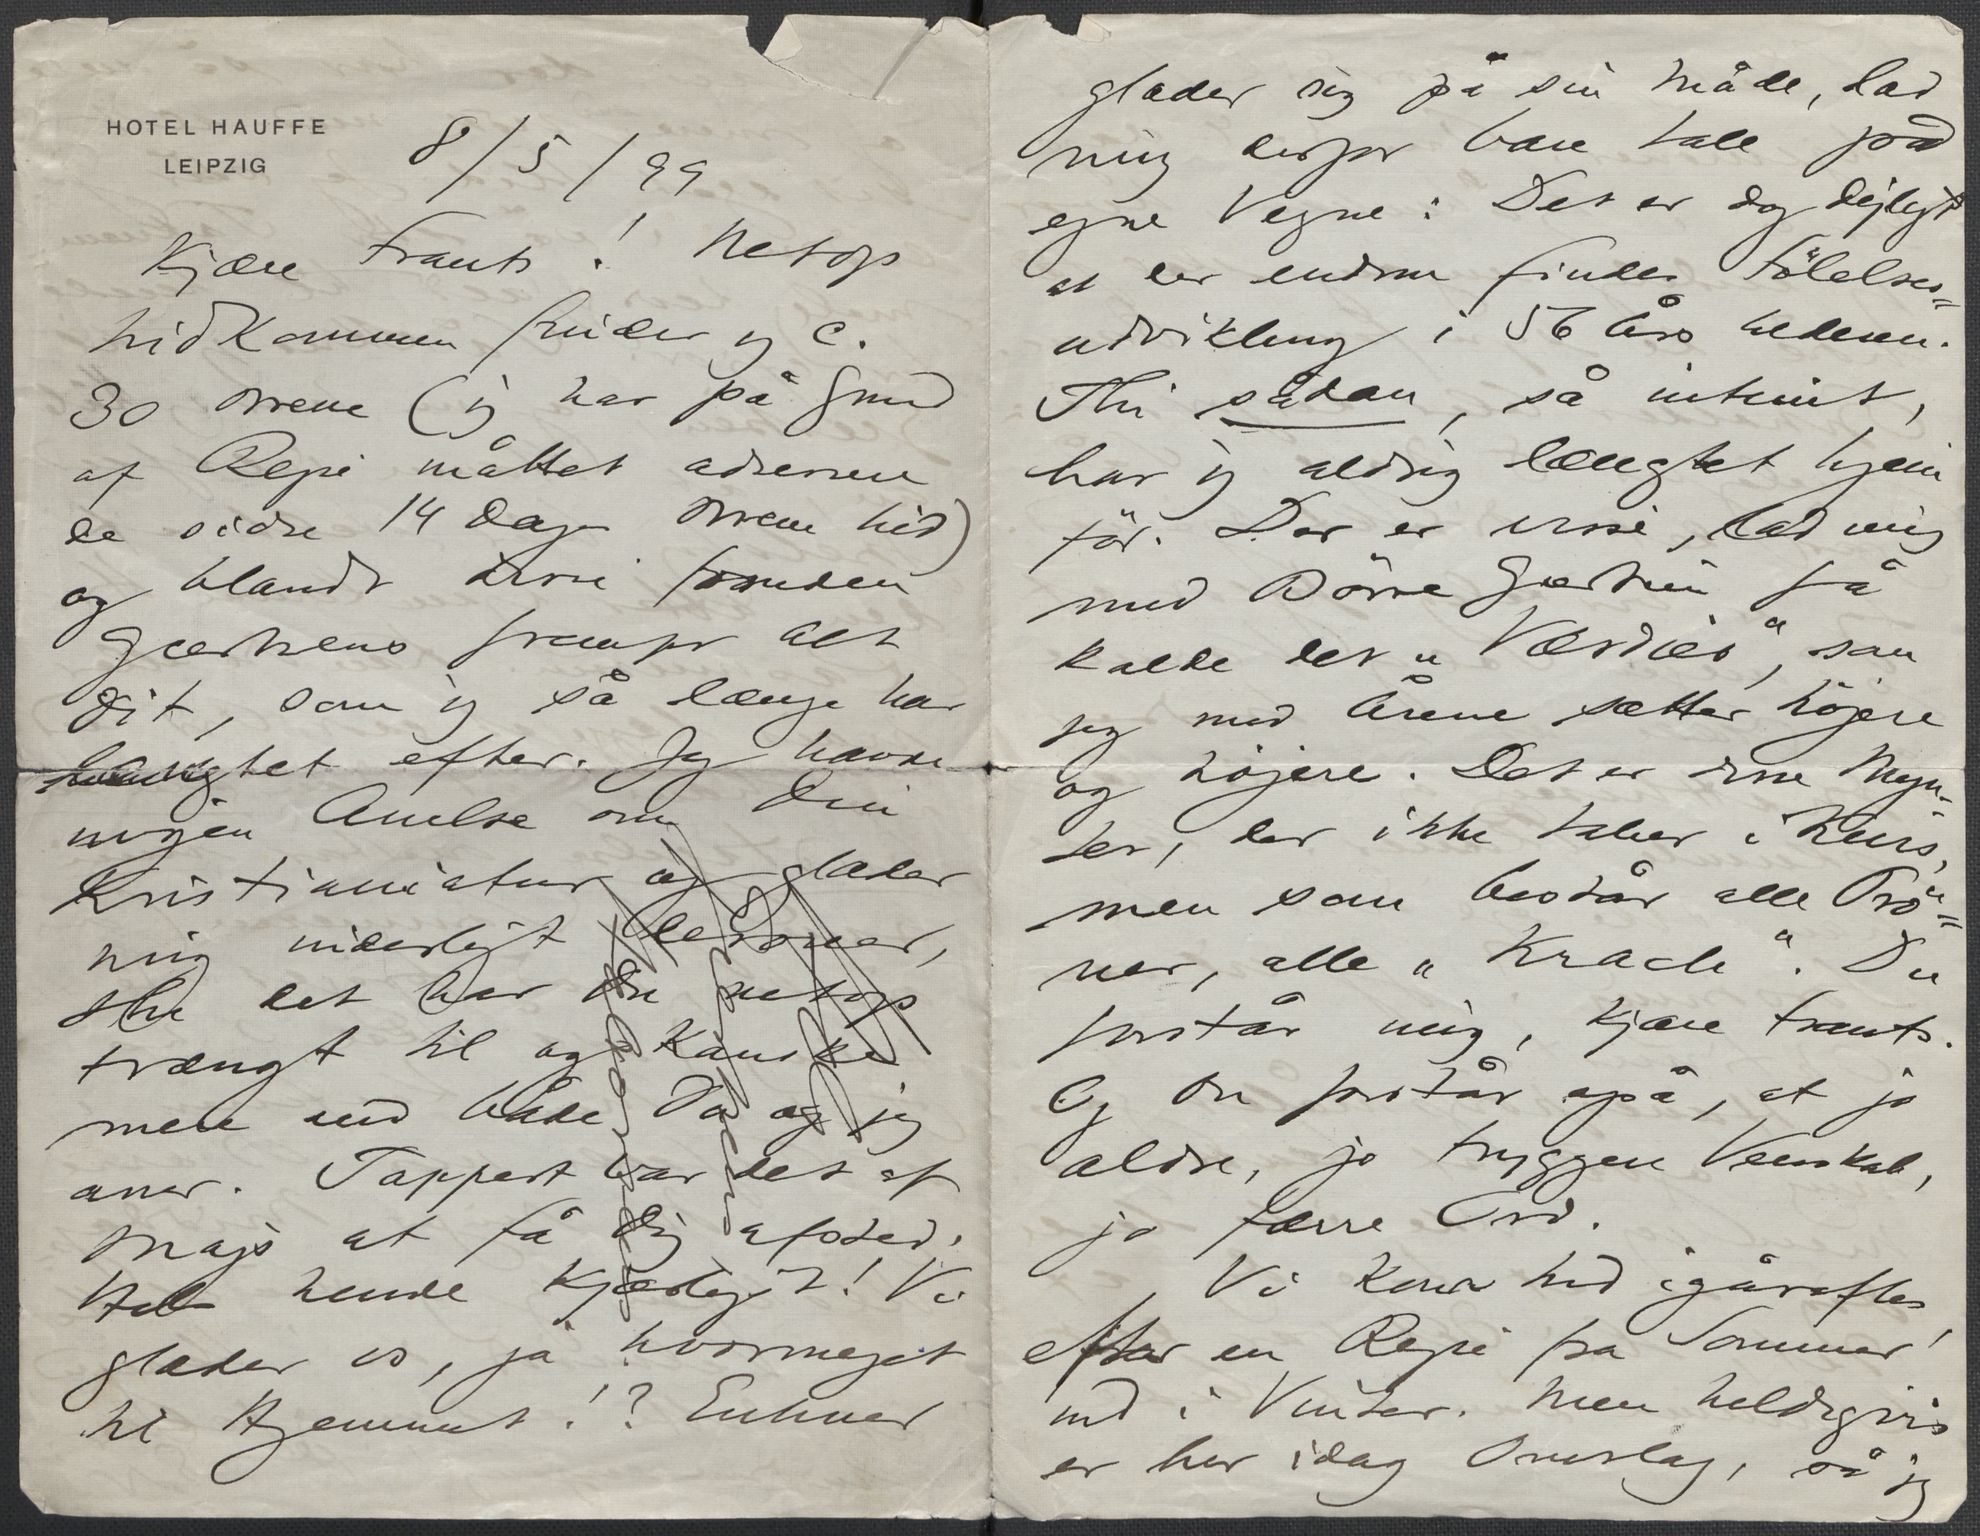 HOTEL HAUFFE
LEIPZIG
8/5/99
Kjære Frants! Netop
hidkommen finder jeg c.
30 Breve (jeg har på Grund
af Rejse måttet adressere
de sidste 14 Dages Breve hid)
og blandt disse foruden
Gjertsens fremfor alt
dit, som jeg så længe har
længtet efter. Jeg havde
ingen Anelse om din
Kristianiatur og glæder
mig inderligt derover,
thi det har du netop
trængt til og kanske
mere end både Du og jeg
aner. Tappert var det af
Majs at få Dig afsted.
Hils hende kjærligst! Vi
glæder os, ja hvormeget
til Hjemmet!? Enhver
glæder sig på sin Måde, lad
mig derfor bare tale på
egne Vegne: Det er dog dejligt
at der endnu findes Følelses=
udvikling i 56 Års Alderen.
Thi sådan, så intimt,
har jeg aldrig længtet hjem
för. Der er visse, lad mig
med Börre Gjertsen få
kalde det „Værdier", som
jeg med Årene sætter højere
og højere. Det er disse Myn-
ter, der ikke taber i Kurs,
men som består alle Prö=
ver, alle „Krach". Du
forstår mig, kjære Frants.
Og Du forstår også, at jo
ældre, jo tryggere Venskab,
jo færre Ord.
Vi kom hid igåraftes
efter en Rejse fra Sommer
ind i Vinter. Men heldigvis
er her idag Omslag, så jeg